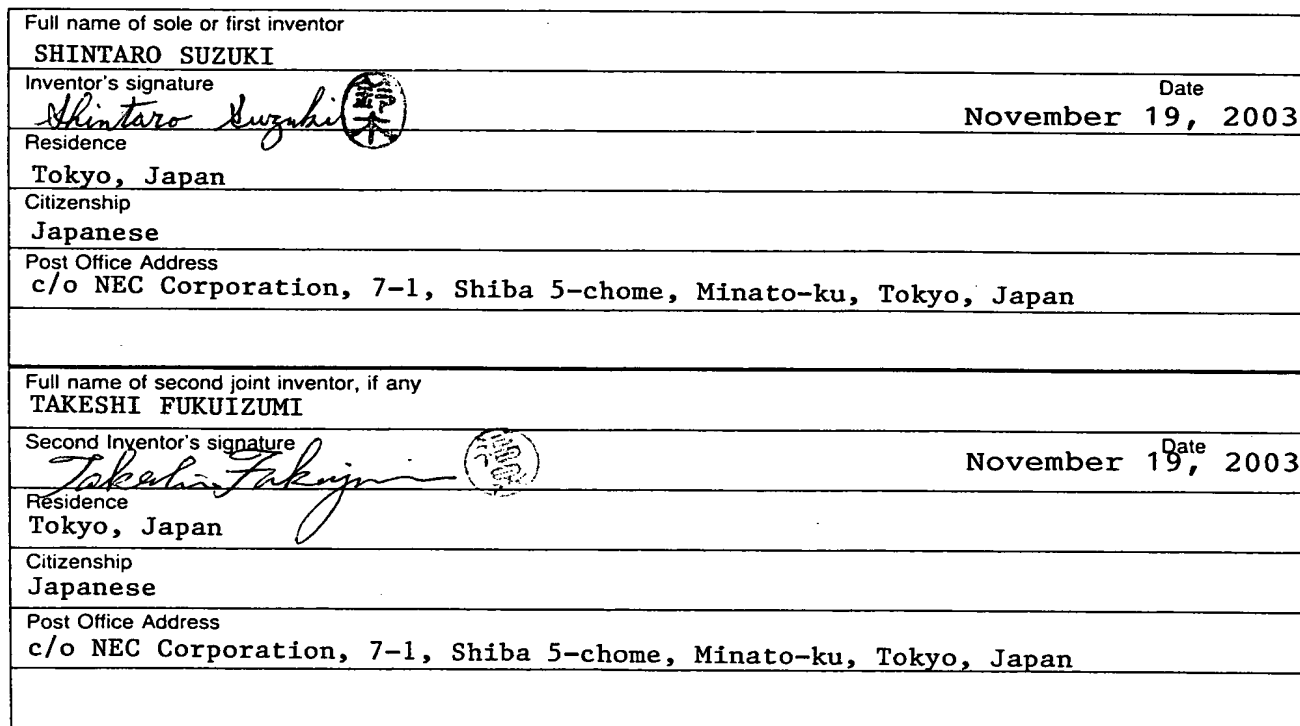 Full name of sole or first inventor
SHINTARO SUZUKI
Inventor's signature
Date
Shintaro Suzuki 鈴木
November 19, 2003
Residence
Tokyo, Japan
Citizenship
Japanese
Post Office Address
c/o NEC Corporation, 7-1, Shiba 5-chome, Minato-ku, Tokyo, Japan
Full name of second joint inventor, if any
TAKESHI FUKUIZUMI
Second Inventor's signature
Date
Takeshi
November 19, 2003
Residence
Tokyo, Japan
Citizenship
Japanese
Post Office Address
c/o NEC Corporation, 7-1, Shiba 5-chome, Minato-ku, Tokyo, Japan